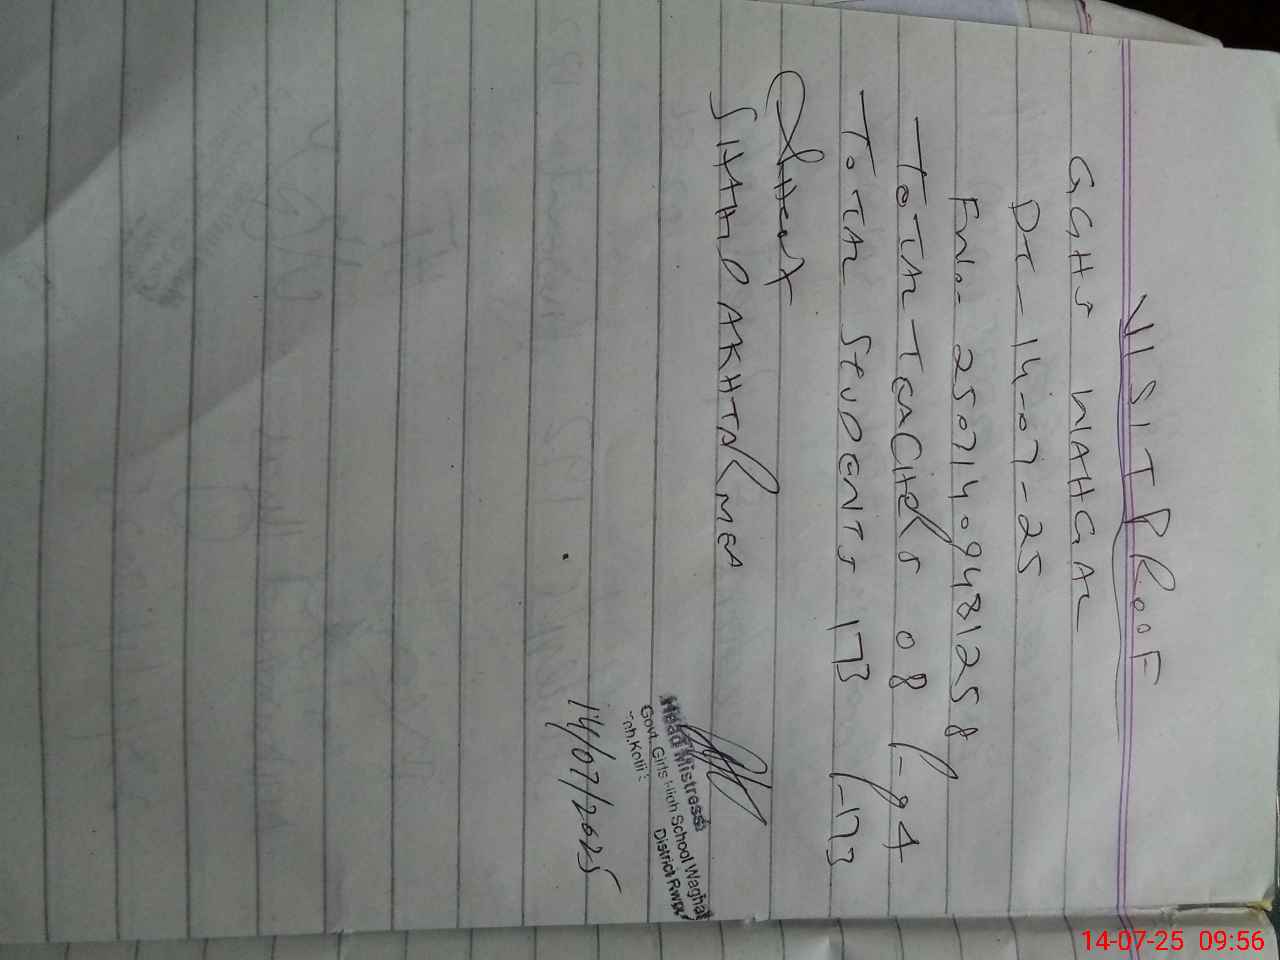 VISIT PROOF
GGHS WAHGAL
DT - 14-07-25
Fn.- 25071409481258
TOTAL TEACHERS 08 P-04
TOTAL STUDENTS 173 P-173
SHAHD AKHTAR MEA
Head Mistress
Govt. Girls High School Waghal
District Rwp
14/07/2025
14-07-25 09:56